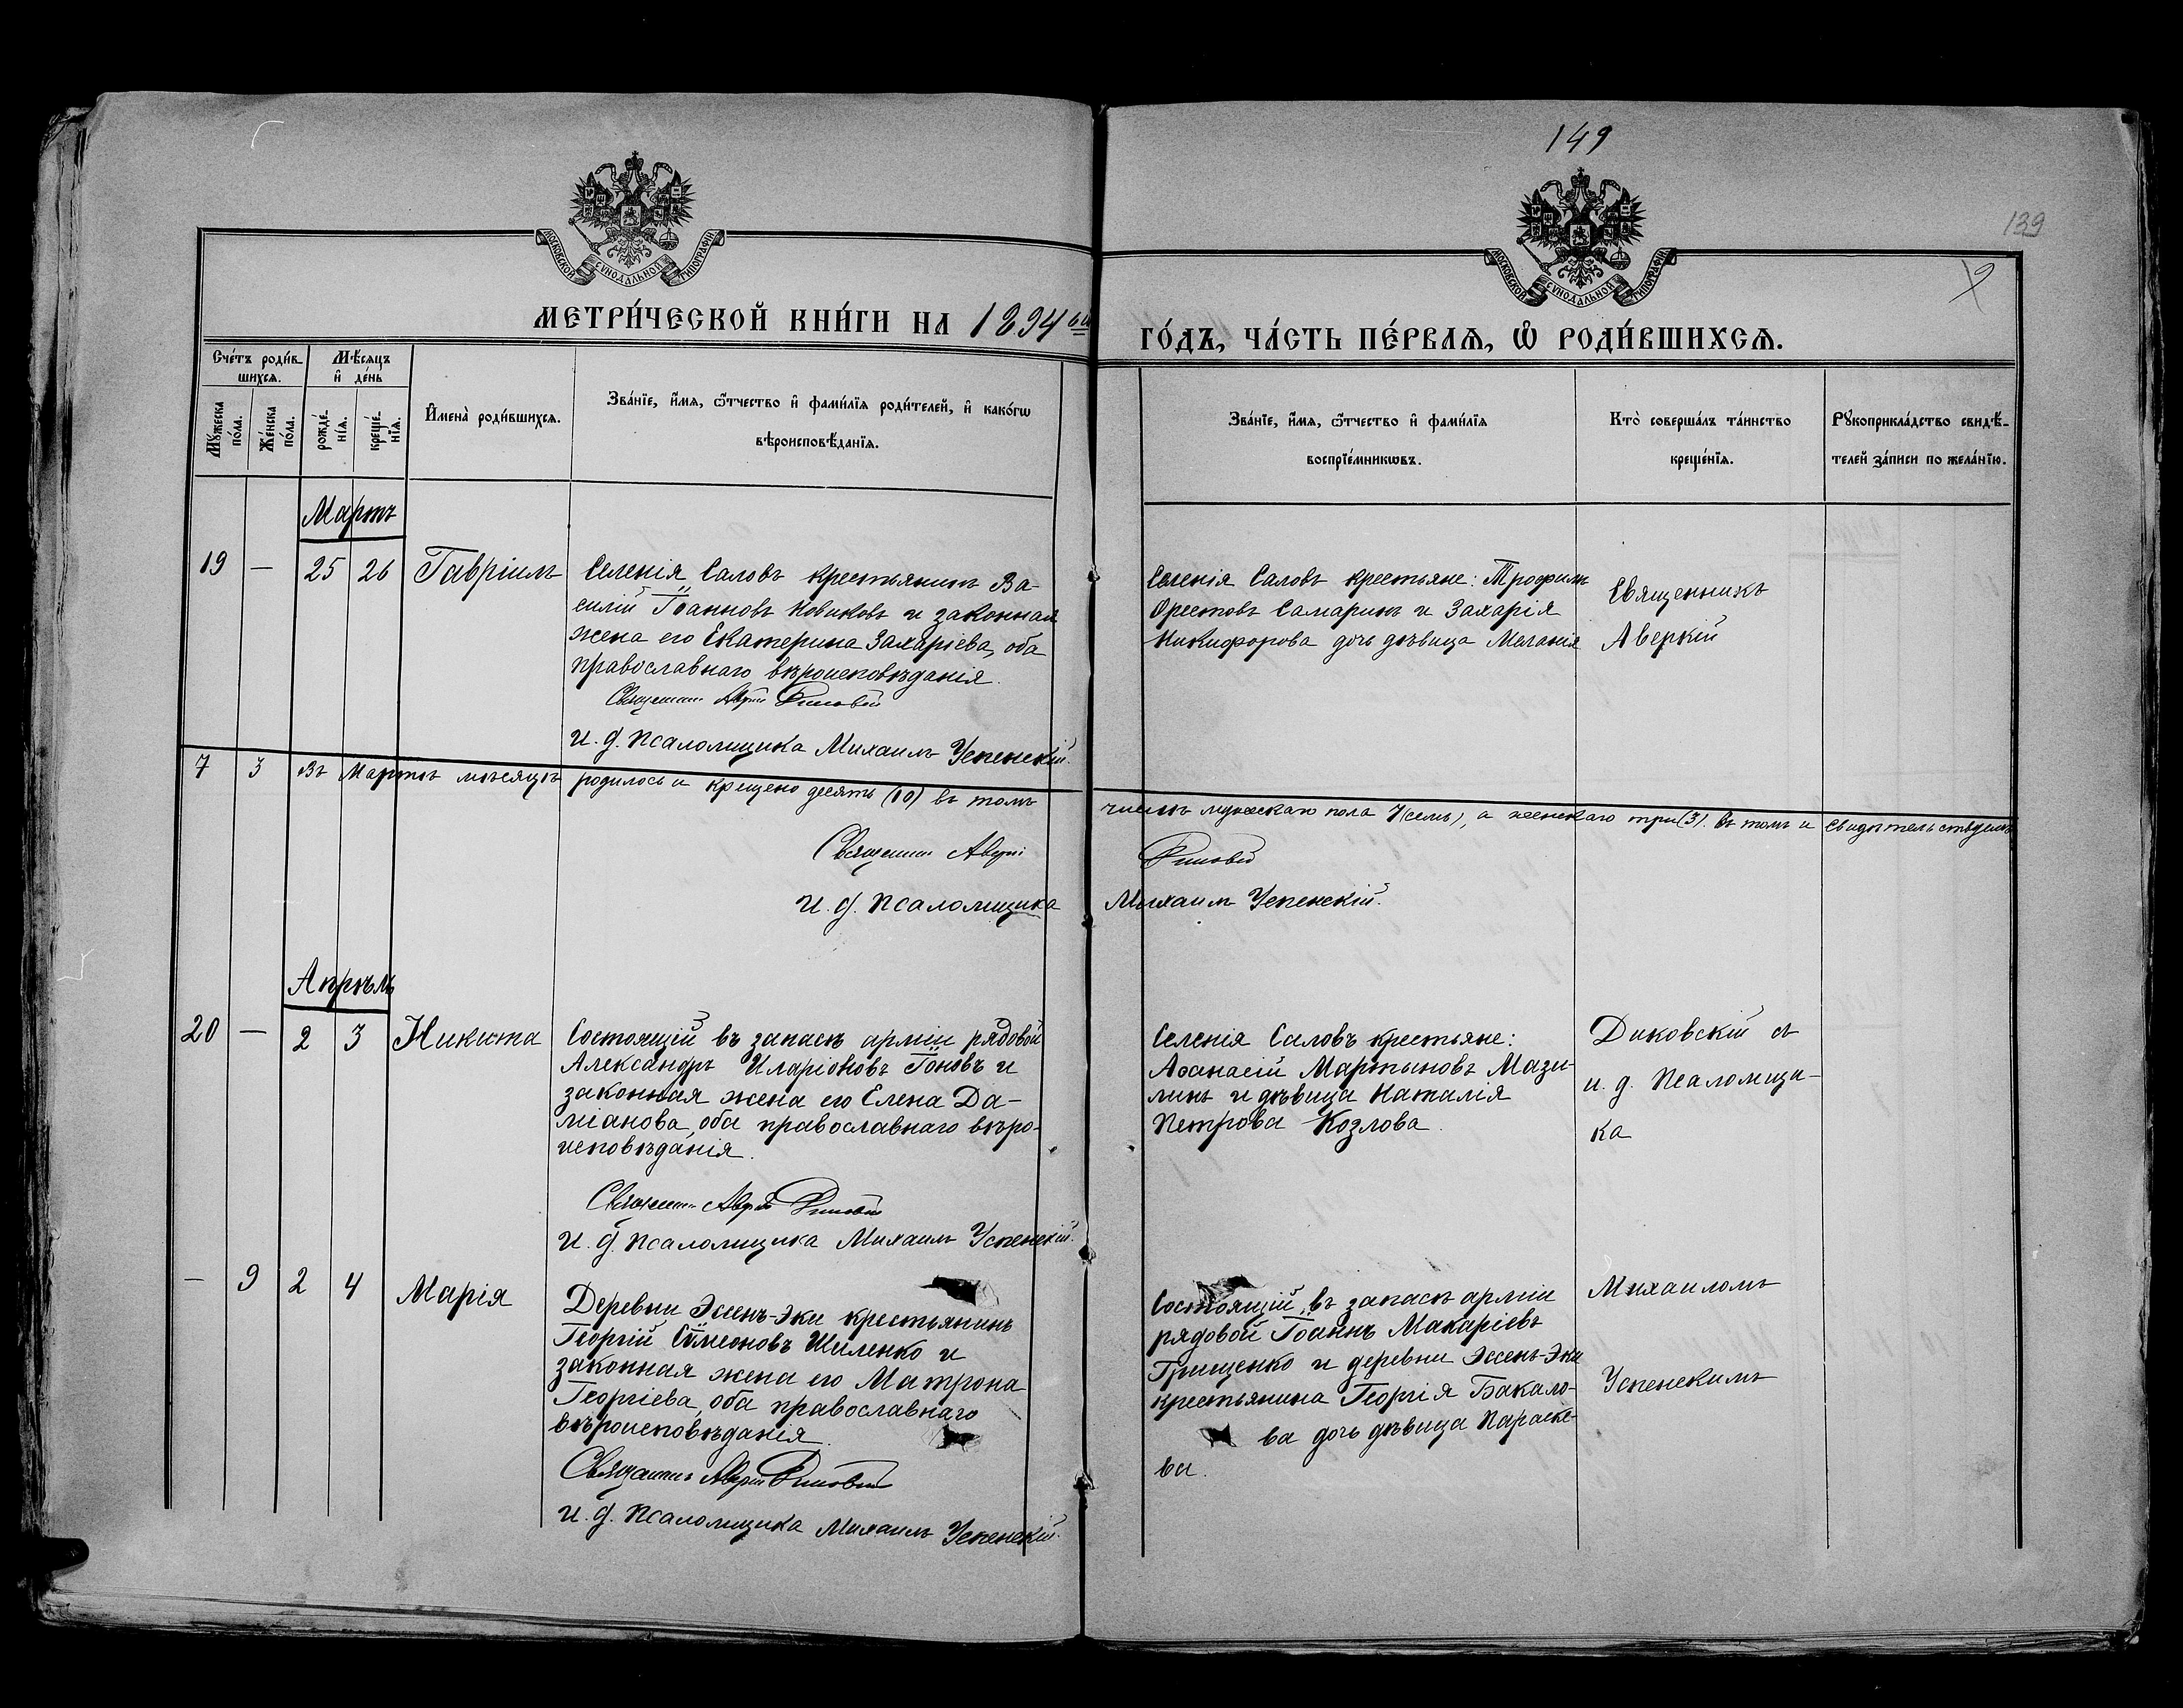 149
139
9
МОСКОВСКОЙ СѴНОДАЛЬНОЙ ТИПОГРАФІИ
МОСКОВСКОЙ СѴНОДАЛЬНОЙ ТИПОГРАФІИ
МЕТРИ́ЧЕСКОЙ КНИ́ГИ НА 1894 ый ГО́ДЪ, ЧА́СТЬ ПЕ́РВАѦ, Ѽ РОДИ́ВШИХСѦ.
Сче́тъ роди́в-
шихсѧ.
Мѣ́сѧцъ
и҆ де́нь
Мꙋ́жеска
по́ла.
Же́нска
по́ла.
рожде́-
нїѧ.
креще́-
нїѧ.
И҆мена̀ роди́вшихсѧ.
Зва́нїе, и҆́мѧ, ѻ҆́тчество и҆ фами́лїѧ роди́телей, и҆ како́гѡ
вѣроисповѣ́данїѧ.
Зва́нїе, и҆́мѧ, ѻ҆́тчество и҆ фами́лїѧ
воспрїе́мникѡвъ.
Кто̀ соверша́лъ та́инство
креще́нїѧ.
Рꙋкоприкла́дство свидѣ́-
телей за́писи по жела́нїю.
Мартъ
19 — 25 26 Гавріилъ
Селенія Саловъ крестьянинъ Ва-
силій Іоанновъ Новиковъ и законная
жена его Екатерина Захаріева, оба
православнаго вѣроисповѣданія.
Священникъ Аверкій Диковскій
И. д. Псаломщика Михаилъ Успенскій.
Селенія Саловъ крестьяне: Трофимъ
Орестовъ Самаринъ и Захарія
Никифорова дочь дѣвица Меланія
Священникъ
Аверкій
7 3 Въ Мартѣ мѣсяцѣ родилось и крещено десять (10) въ томъ числѣ мужскаго пола 7 (семь), а женскаго три (3). Въ томъ и свидѣтельствуемъ
Священникъ Аверкій Диковскій
И. д. Псаломщика Михаилъ Успенскій.
Апрѣль
20 — 2 3 Никита
Состоящій въ запасѣ арміи рядовой
Александръ Иларіоновъ Іоновъ и
законная жена его Елена Да-
міанова, оба православнаго вѣро-
исповѣданія.
Священникъ Аверкій Диковскій
И. д. Псаломщика Михаилъ Успенскій.
Селенія Саловъ крестьяне:
Аѳанасій Мартыновъ Мази-
линъ и дѣвица Наталія
Петрова Козлова.
Диковскій съ
и. д. Псаломщи-
ка
— 9 2 4 Марія
Деревни Эсенъ-Эки крестьянинъ
Георгій Сѵмеоновъ Шиленко и
законная жена его Матрона
Георгіева, оба православнаго
вѣроисповѣданія.
Священникъ Аверкій Диковскій
И. д. Псаломщика Михаилъ Успенскій.
Состоящій въ запасѣ арміи
рядовой Іоаннъ Макаріевъ
Грищенко и деревни Эсенъ-Эки
крестьянина Георгія Бакало-
ва дочь дѣвица Параске-
ва.
Михаиломъ
Успенскимъ